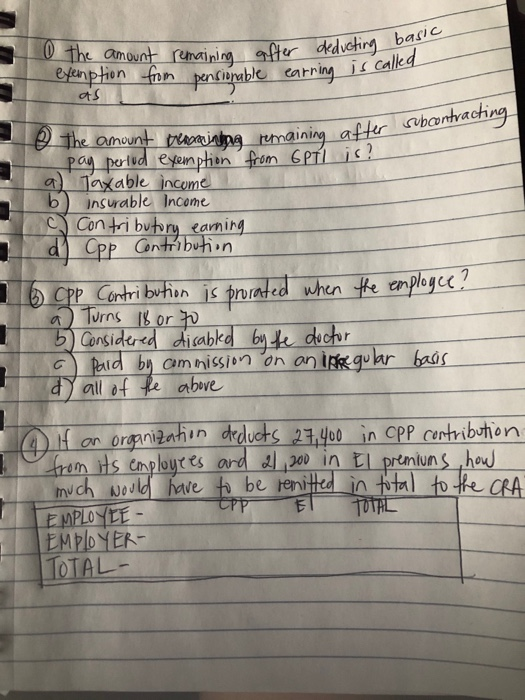 ① The amount remaining after deducting basic
exemption from pensionable earning is called
as __________?
② The amount remaining after subcontracting
pay period exemption from GPTI is?
a) Taxable income
b) insurable Income
c) Contributory earning
d) Cpp Contribution
③ CPP Contribution is prorated when the employee?
a) Turns 18 or 70
b) Considered disabled by the doctor
c) Paid by commission on an irregular basis
d) all of the above
④ If an organization deducts 27,400 in CPP contribution
from its employees and 21,200 in EI premiums, how
much would have to be remitted in total to the CRA
CPP EI TOTAL
EMPLOYEE -
EMPLOYER -
TOTAL -